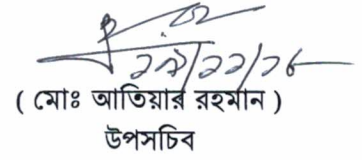 ( মোঃ আতিয়ার রহমান )
উপসচিব